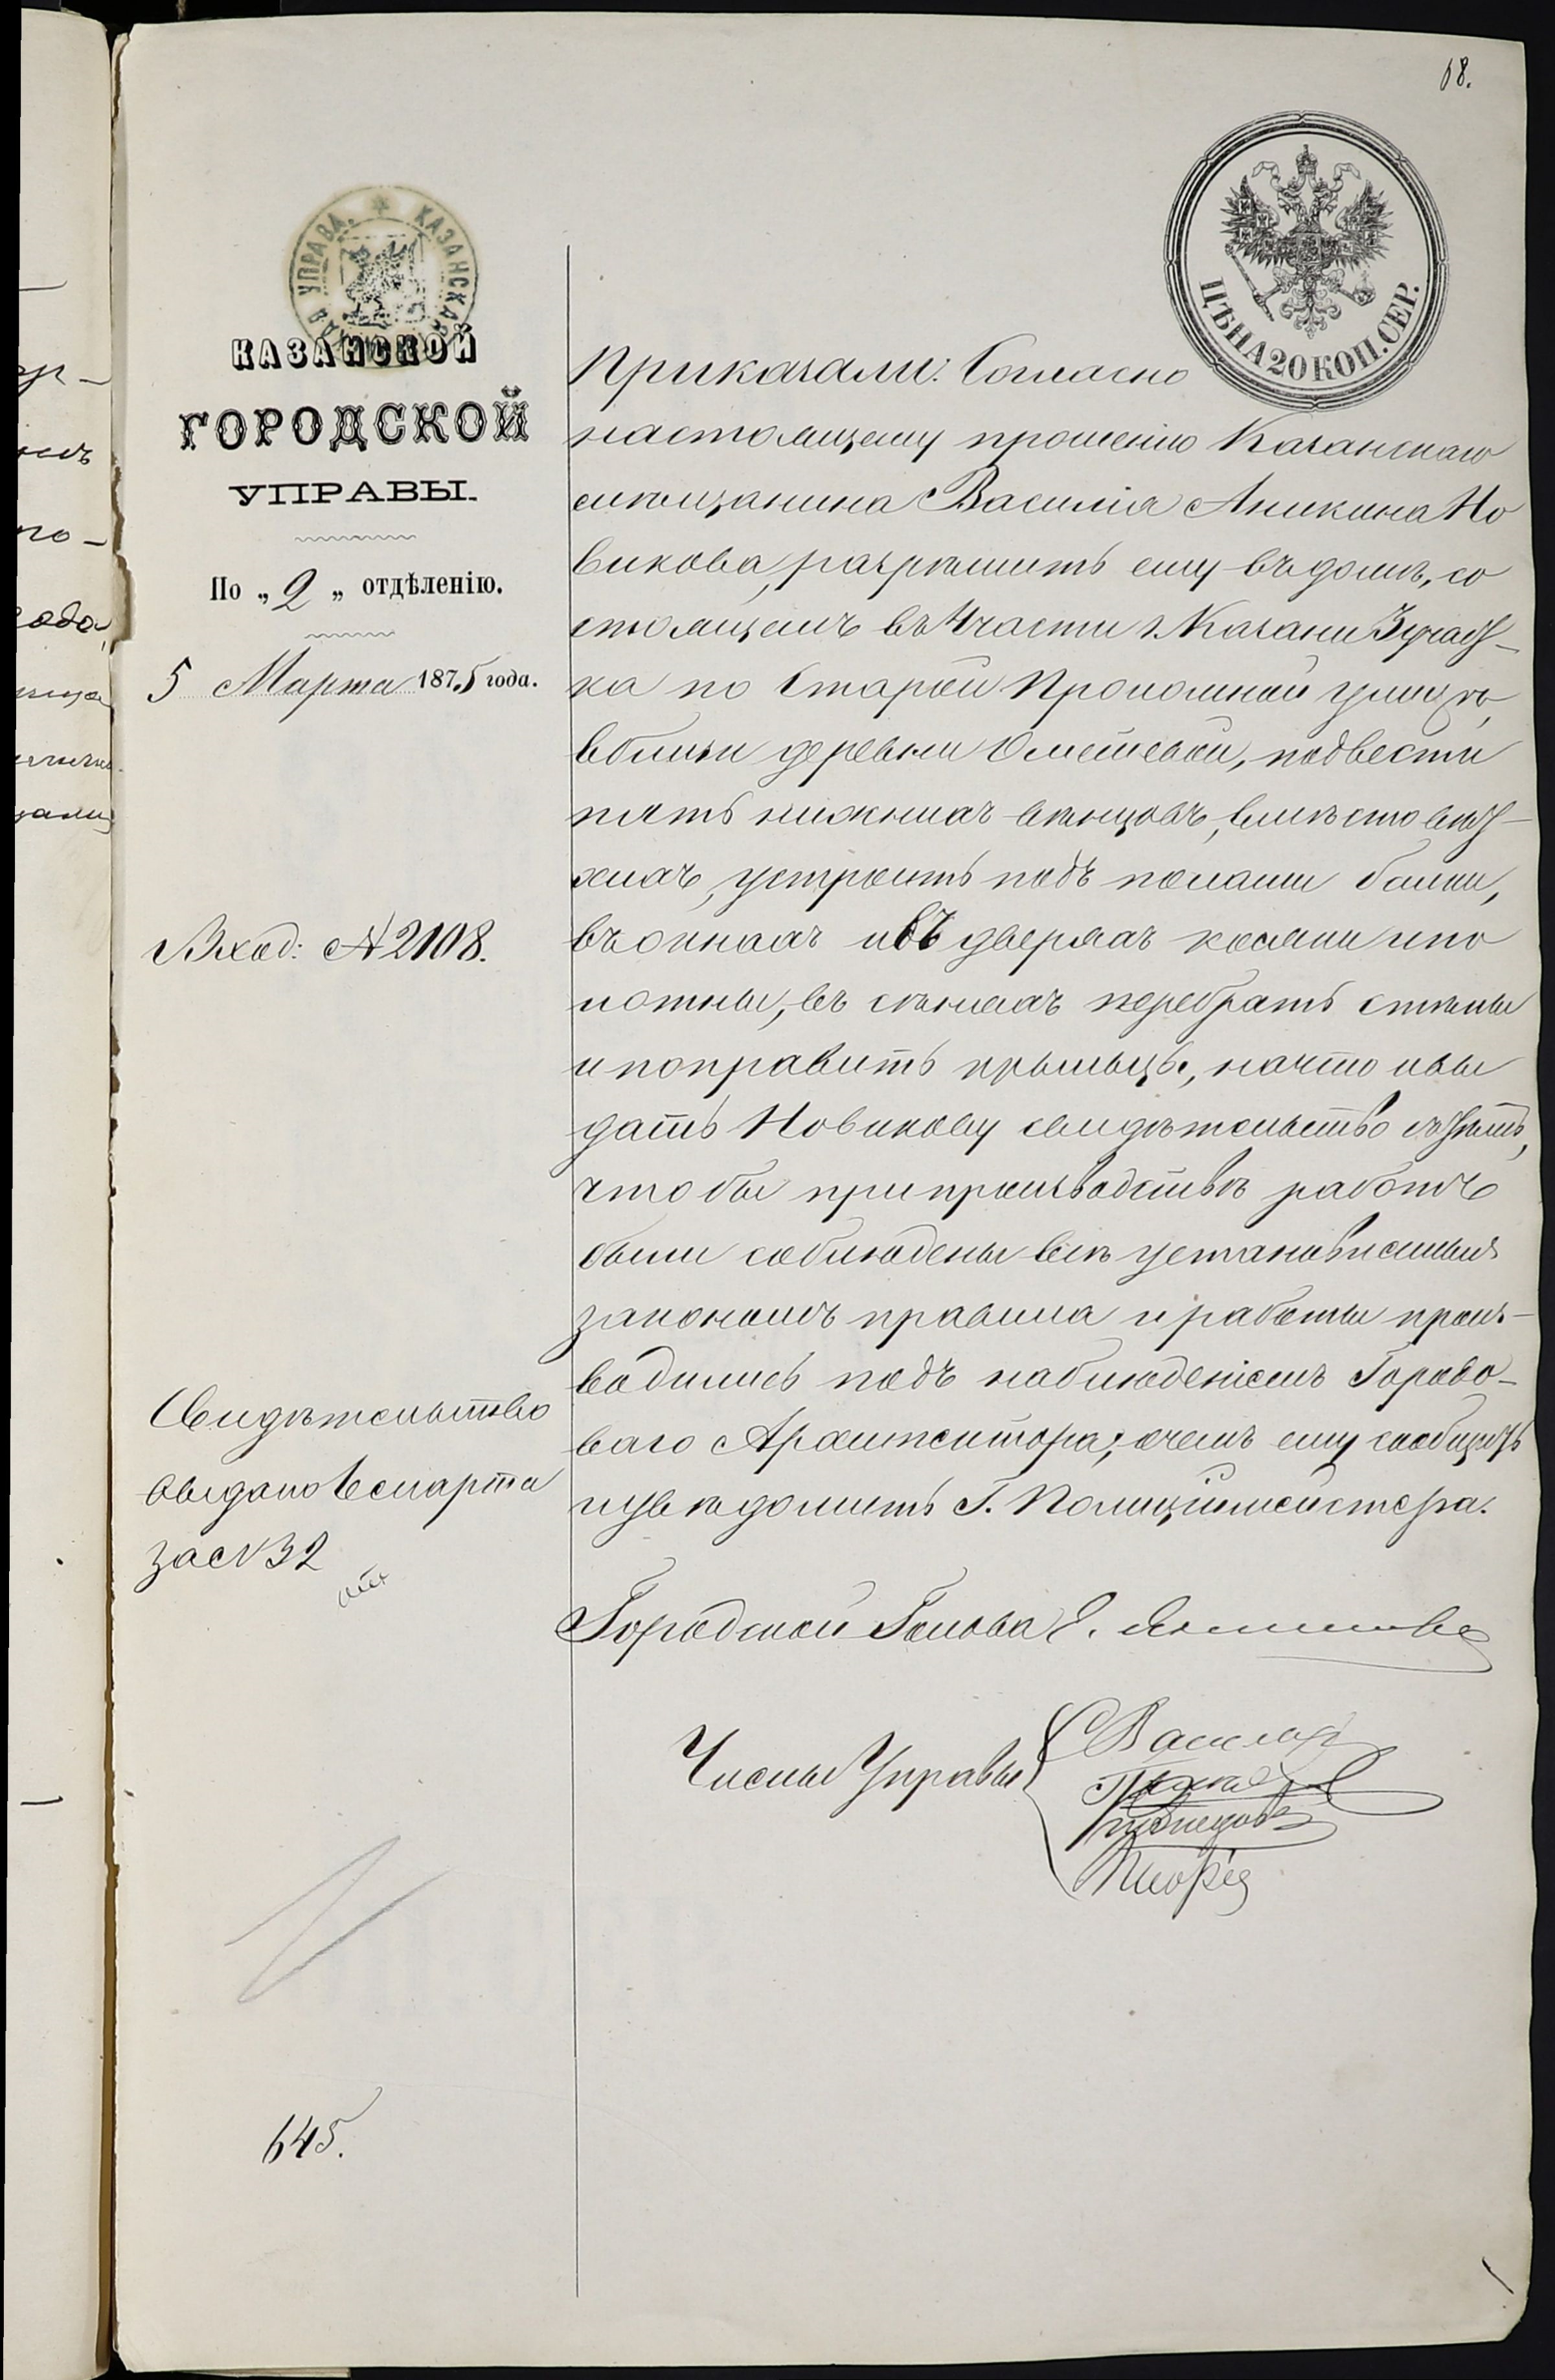 18.
КАЗАНСКАЯ УПРАВА.
ЦѢНА 20 КОП. СЕР.
КАЗАНСКОЙ
ГОРОДСКОЙ
УПРАВЫ.
По „2„ отдѣленію.
5 Марта 1875 года.
Вход: № 2108.
Свидѣтельство
выдано 6 марта
за № 32
645.
Приказали: Согласно
настоящему прошенію Казанскаго
мѣщанина Василія Аникина Но
викова, разрѣшить ему въ домѣ, со
стоящемъ въ 4 части г. Казани 3 участ-
ка по Старой Проломной улицѣ,
вблизи деревни Ометевой, подвести
пять нижнихъ вѣнцовъ, вмѣсто вет-
хихъ, устроить подъ полами балки,
въ окнахъ и въ дверяхъ косяки и по
лотны, въ сѣняхъ перебрать стѣны
и поправить крыльцы, на что и вы
дать Новикову свидѣтельство съ тѣмъ,
что бы при производствѣ работъ
были соблюдены всѣ установленныя
закономъ правила и работы произ-
водились подъ наблюденіемъ Городо-
ваго Архитектора; о чемъ ему сообщить
и увѣдомить Г. Полиціймейстера.
Городской Голова Е.
Члены Управы